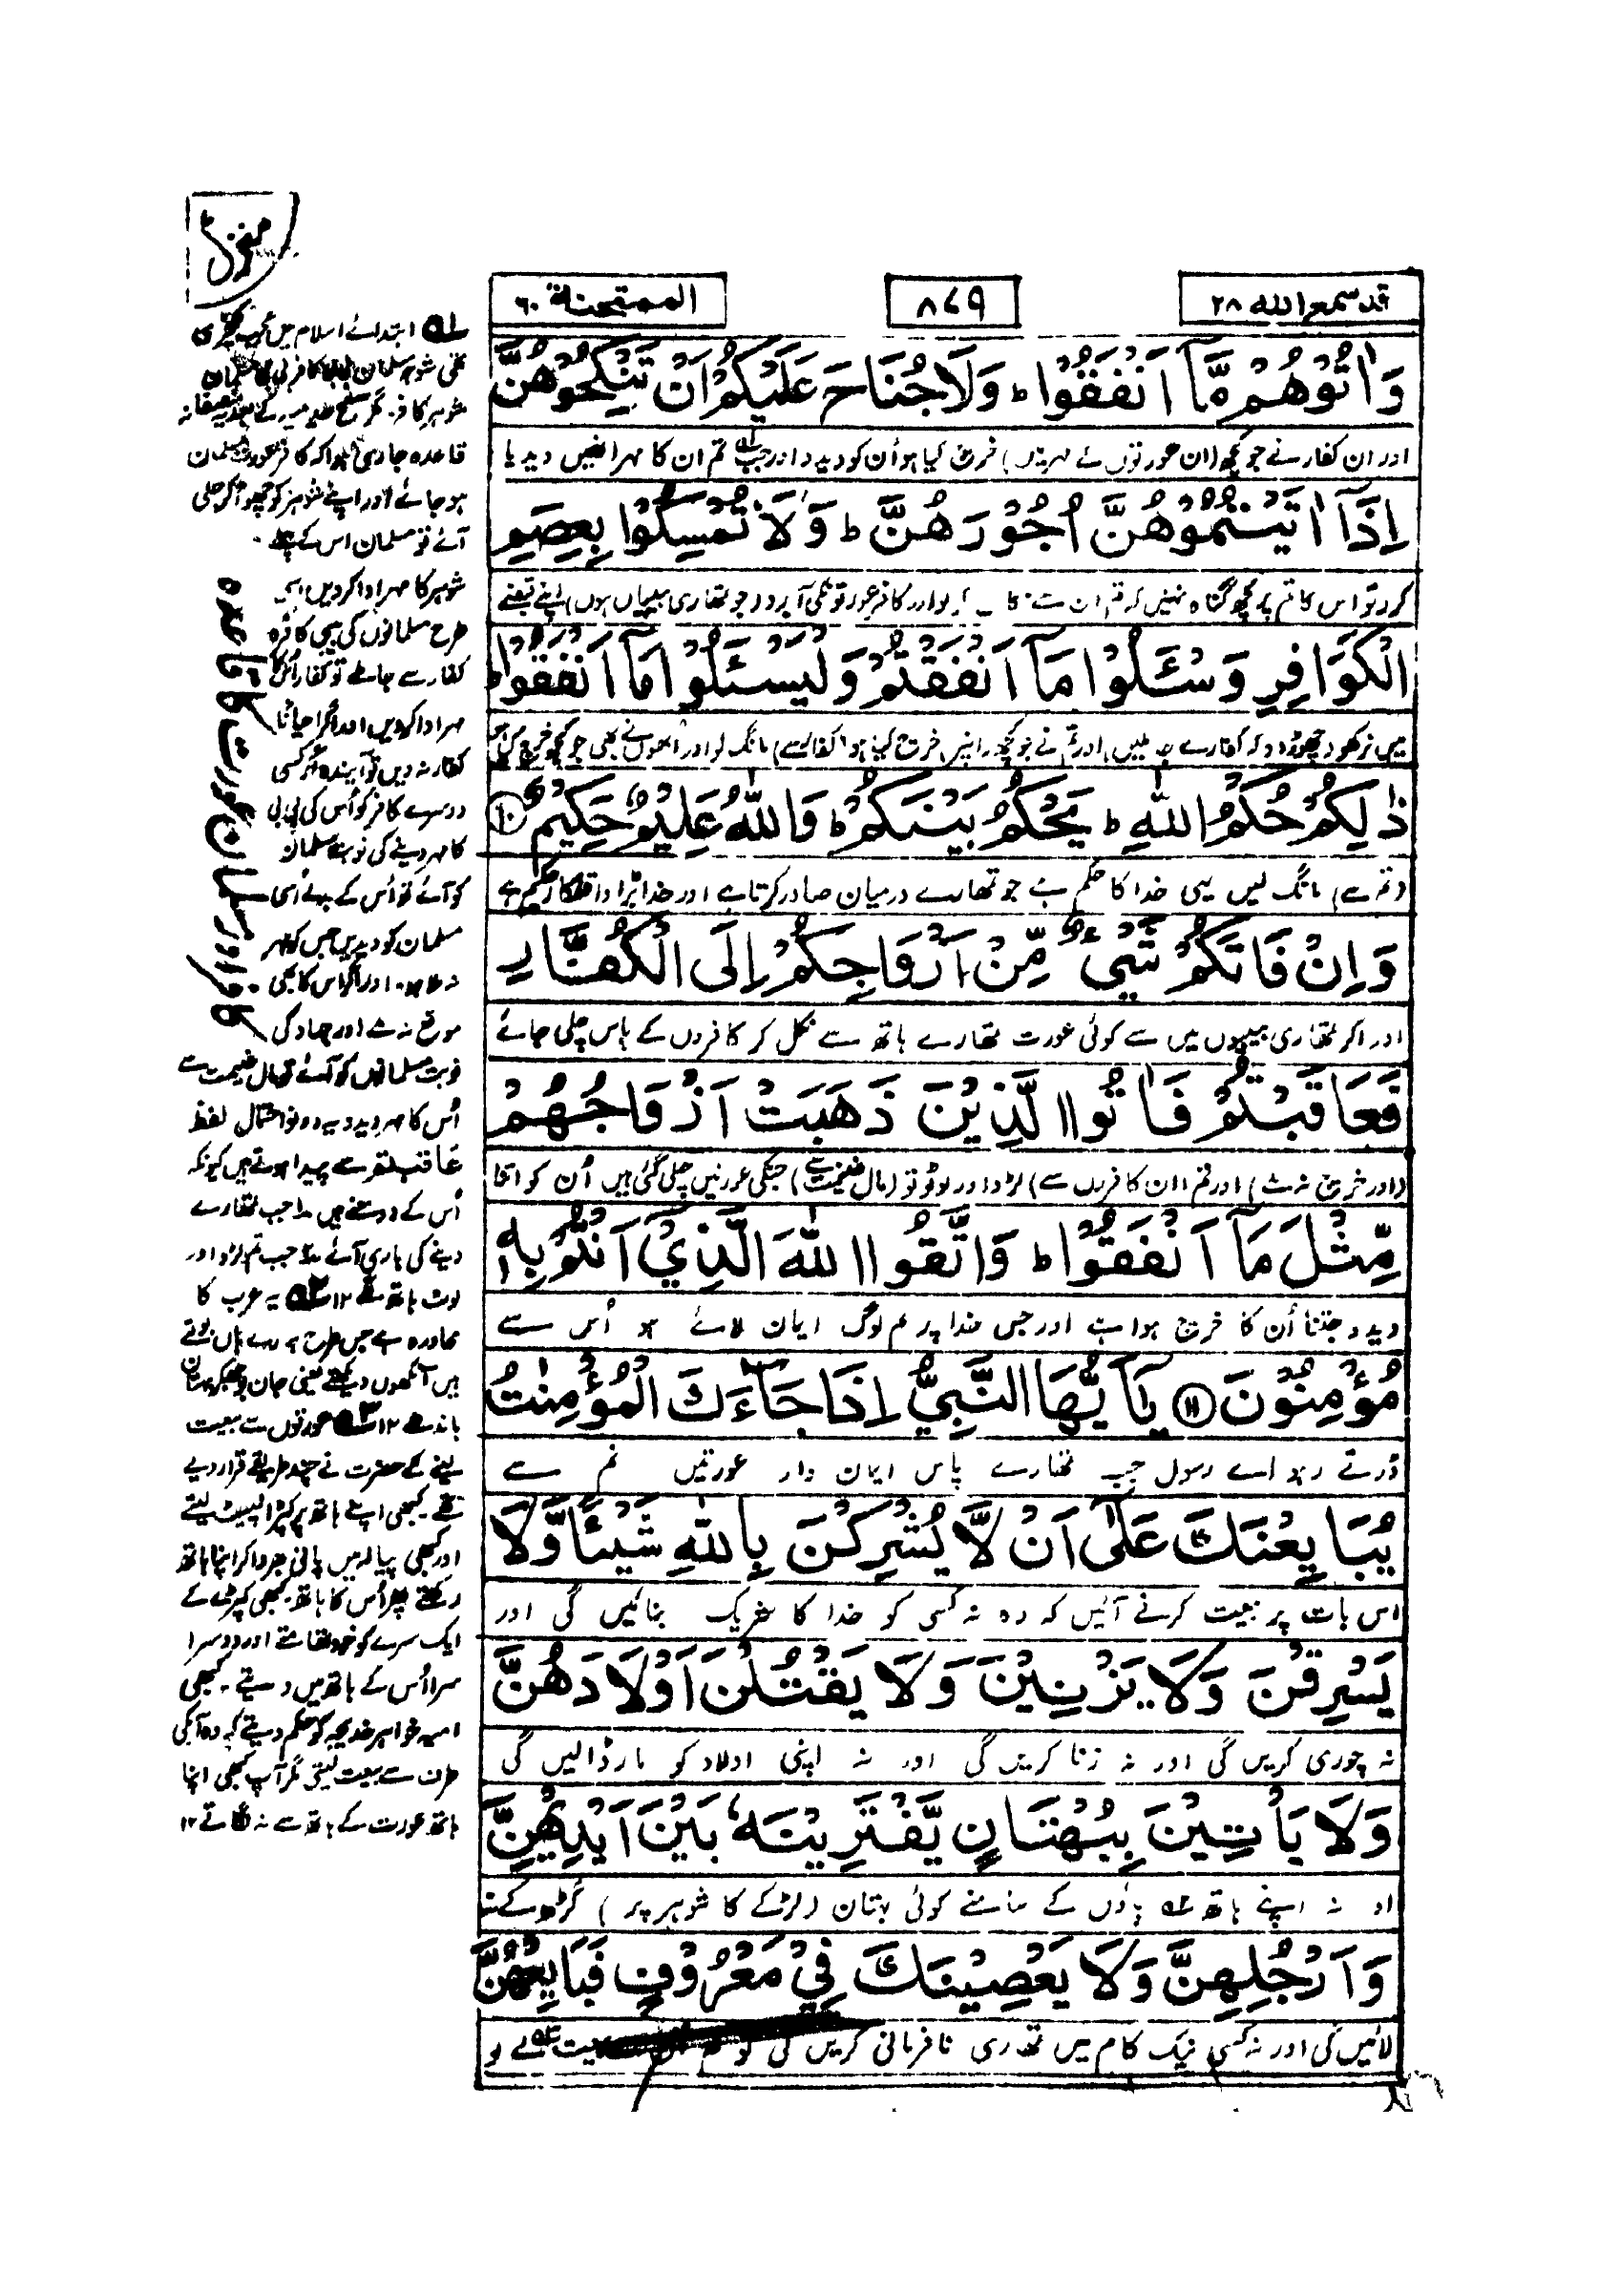 منزل
قد سمع الله ۲۸
۸۷۹
الممتحنة ۶۰
وَاٰتُوْهُمْ مَّآ اَنْفَقُوْا ؕ وَلَا جُنَاحَ عَلَيْكُمْ اَنْ تَنْكِحُوْهُنَّ
اور ان کفار نے جو کچھ (ان عورتوں کے مہر میں) خرچ کیا ہو اُن کو دیدو اور جب تم ان کا مہر انھیں دیدیا
اِذَآ اٰتَيْتُمُوْهُنَّ اُجُوْرَهُنَّ ؕ وَلَا تُمْسِكُوْا بِعِصَمِ
کرو تو اس کا تم پر کچھ گناہ نہیں کہ تم ان سے لو اور کافر عورتونکی آبرو (جو تمھاری بیبیاں ہوں) اپنے قبضے
الْكَوَافِرِ وَسْـَٔلُوْا مَآ اَنْفَقْتُمْ وَلْيَسْـَٔلُوْا مَآ اَنْفَقُوْا ؕ
میں نرکھو (چھوڑدو کہ کفار سے جا ملیں) اور تم نے جو کچھ (انپر) خرچ کیا ہو (کفار سے) مانگ لو اور انھوں نے بھی جو کچھ خرچ کیا ہو
ذٰلِكُمْ حُكْمُ اللّٰهِ ؕ يَحْكُمُ بَيْنَكُمْ ؕ وَاللّٰهُ عَلِيْمٌ حَكِيْمٌ ۱۰
(تم سے) مانگ لیں یہی خدا کا حکم ہے جو تمھارے درمیان صادر کرتا ہے اور خدا بڑا واقفکار حکیم ہے
وَاِنْ فَاتَكُمْ شَيْءٌ مِّنْ اَزْوَاجِكُمْ اِلَى الْكُفَّارِ
اور اگر تمھاری بیبیوں میں سے کوئی عورت تمھارے ہاتھ سے نکل کر کافروں کے پاس چلی جائے
فَعَاقَبْتُمْ فَاٰتُوا الَّذِيْنَ ذَهَبَتْ اَزْوَاجُهُمْ
(اور خرچ نہ ملے) اور تم (ان کافروں سے) لڑو اور لوٹو تو (مال غنیمت سے) جنکی عورتیں چلی گئی ہیں اُن کو اتنا
مِّثْلَ مَآ اَنْفَقُوْا ؕ وَاتَّقُوا اللّٰهَ الَّذِيْٓ اَنْتُمْ بِهٖ
دیدو جتنا اُن کا خرچ ہوا ہے اور جس خدا پر تم لوگ ایمان لائے ہو اُس سے
مُؤْمِنُوْنَ ۱۱ يٰٓاَيُّهَا النَّبِيُّ اِذَا جَآءَكَ الْمُؤْمِنٰتُ
ڈرتے رہو اے رسول جب تمھارے پاس ایمان دار عورتیں تم سے
يُبَايِعْنَكَ عَلٰٓى اَنْ لَّا يُشْرِكْنَ بِاللّٰهِ شَيْـًٔا وَّلَا
اس بات پر بیعت کرنے آئیں کہ وہ نہ کسی کو خدا کا شریک بنائیں گی اور
يَسْرِقْنَ وَلَا يَزْنِيْنَ وَلَا يَقْتُلْنَ اَوْلَادَهُنَّ
نہ چوری کریں گی اور نہ زنا کریں گی اور نہ اپنی اولاد کو مار ڈالیں گی
وَلَا يَاْتِيْنَ بِبُهْتَانٍ يَّفْتَرِيْنَهٗ بَيْنَ اَيْدِيْهِنَّ
او نہ اپنے ہاتھ پاؤں کے سامنے کوئی بہتان (لڑکے کا شوہر پر) گڑھ کے
وَاَرْجُلِهِنَّ وَلَا يَعْصِيْنَكَ فِيْ مَعْرُوْفٍ فَبَايِعْهُنَّ
لائیں گی اور نہ کسی نیک کام میں تمھاری نافرمانی کریں گی تو تم بیعت لے لو
ابتدائے اسلام میں
شوہر کافر مگر صلح
قاعدہ جاری ہوا کہ کافر عورت مسلمان
ہو جائے اور اپنے شوہر کو چھوڑ کر چلی
آئے تو مسلمان اس کے پہلے
شوہر کا مہر ادا کردیں اسی
طرح مسلمانوں کی بیبی کافرہ
کفار سے جا ملے تو کفار اُس کا
مہر ادا کردیں اور اگر احیاناً
کفار نہ دیں تو آیندہ اگر کسی
دوسرے کافر کو اُس کی بی بی
کا مہر دینے کی نوبت مسلمان
کو آئے تو اُس کے بدلے اُسی
مسلمان کو دیدیں جس کو مہر
نہ ملا ہو۔ اور اگر اس کا بھی
موقع نہ ملے اور جہاد کی
نوبت مسلمانوں کو آئے تو مال غنیمت سے
اُس کا مہر دیدو یہ دونوں احتمال لفظ
عاقبتم سے پیدا ہوتے ہیں کیونکہ
اُس کے دو معنے ہیں ۱۔ جب تمھارے
دینے کی باری آئے ۲۔ جب تم لڑو اور
لوٹ ہاتھ لگے ۱۲ یہ عرب کا
محاورہ ہے جس طرح ہمارے ہاں بولتے
ہیں آنکھوں دیکھتے یعنی جان بوجھکر بہتان
باندھے ۱۲ عورتوں سے بیعت
لینے کے حضرت نے چند طریقے قرار دیے
تھے۔ کبھی اپنے ہاتھ پر کپڑا لپیٹ لیتے
اور کبھی پیالہ میں پانی بھروا کر اپنا ہاتھ
رکھتے پھر اُس کا ہاتھ۔ کبھی کپڑے کے
ایک سرے کو خود تھامتے اور دوسرا
سرا اُس کے ہاتھ میں دیتے۔ کبھی
امیمہ خواہر خدیجہ کو حکم دیتے کہ وہ آپکی
طرف سے بیعت لیتی مگر آپ کبھی اپنا
ہاتھ عورت کے ہاتھ سے نہ لگاتے ۱۲
کافر اور مسلمان عورت کا قاعدہ